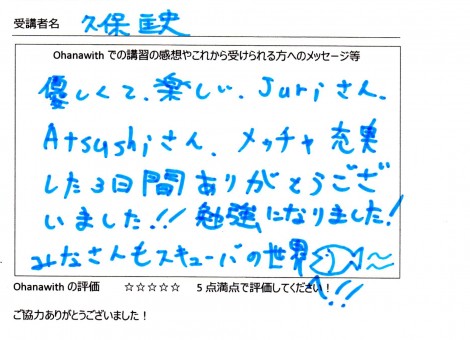 受講者名 久保 匡史
Ohanawith での講習の感想やこれから受けられる方へのメッセージ等
優しくて、楽しい、Juriさん、
Atsushiさん、メッチャ充実
した3日間ありがとうござ
いました!! 勉強になりました!
みなさんもスキューバの世界へ!!!
Ohanawith の評価 ☆☆☆☆☆ 5点満点で評価してください!
ご協力ありがとうございました!